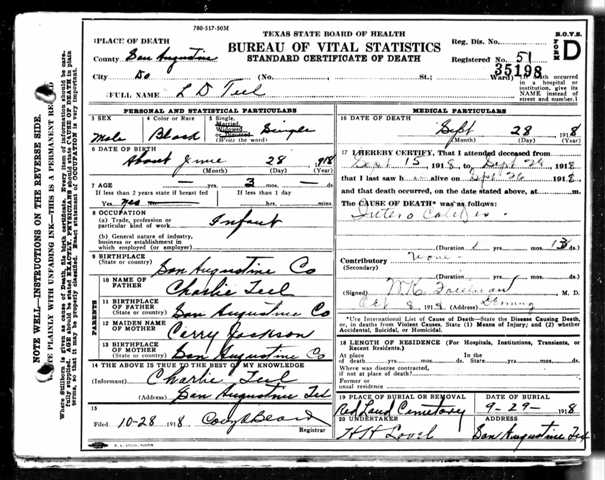 780-517-503M
TEXAS STATE BOARD OF HEALTH
BUREAU OF VITAL STATISTICS
STANDARD CERTIFICATE OF DEATH
B.O.V.S.
FORM D
Reg. Dis. No.
Registered No. 51
35198
1 PLACE OF DEATH
County San Augustine
City Do (No. St.; Ward) (If death occurred in a hospital or institution, give its NAME instead of street and number.)
2 FULL NAME L D Teel
PERSONAL AND STATISTICAL PARTICULARS
3 SEX
Male
4 Color or Race
Black
5 Single, Married, Widowed, or Divorced (Write the word)
Single
6 DATE OF BIRTH
About June 28 1918
(Month) (Day) (Year)
7 AGE — yrs. 3 mos. — ds.
If less than 2 years state if breast fed If less than 1 day
Yes yes hrs. mins.
8 OCCUPATION
(a) Trade, profession or particular kind of work Infant
(b) General nature of industry, business or establishment in which employed (or employer)
9 BIRTHPLACE
(State or country) San Augustine Co
PARENTS
10 NAME OF FATHER Charlie Teel
11 BIRTHPLACE OF FATHER
(State or country) San Augustine Co
12 MAIDEN NAME OF MOTHER Carry Jackson
13 BIRTHPLACE OF MOTHER
(State or country) San Augustine Co
14 THE ABOVE IS TRUE TO THE BEST OF MY KNOWLEDGE
(Informant) Charlie Teel
(Address) San Augustine Tex
15
Filed 10-28 1918
Registrar
MEDICAL PARTICULARS
16 DATE OF DEATH
Sept 28 1918
(Month) (Day) (Year)
17 I HEREBY CERTIFY, That I attended deceased from
Sept 15 1918 to Sept 26 1918
that I last saw h alive on Sept 26 1918
and that death occurred, on the date stated above, at m.
The CAUSE OF DEATH* was as follows:
(Duration) yrs. mos. 13 ds.
Contributory None
(Secondary)
(Duration) yrs. mos. ds.
(Signed) M. D.
Oct 8 1918 (Address)
*Use International List of Cause of Death—State the Disease Causing Death, or, in deaths from Violent Causes, State (1) Means of Injury; and (2) whether Accidental, Suicidal, or Homicidal.
18 LENGTH OF RESIDENCE (For Hospitals, Institutions, Transients, or Recent Residents.)
At place of death yrs. mos. ds. In the State yrs. mos. ds.
Where was disease contracted, if not at place of death?
Former or usual residence
19 PLACE OF BURIAL OR REMOVAL
Red Land Cemetery
DATE OF BURIAL
9-29- 1918
20 UNDERTAKER
H H Lovel
ADDRESS
San Augustine Tex
NOTE WELL—INSTRUCTIONS ON THE REVERSE SIDE.
PLAINLY WITH UNFADING INK—THIS IS A PERMANENT